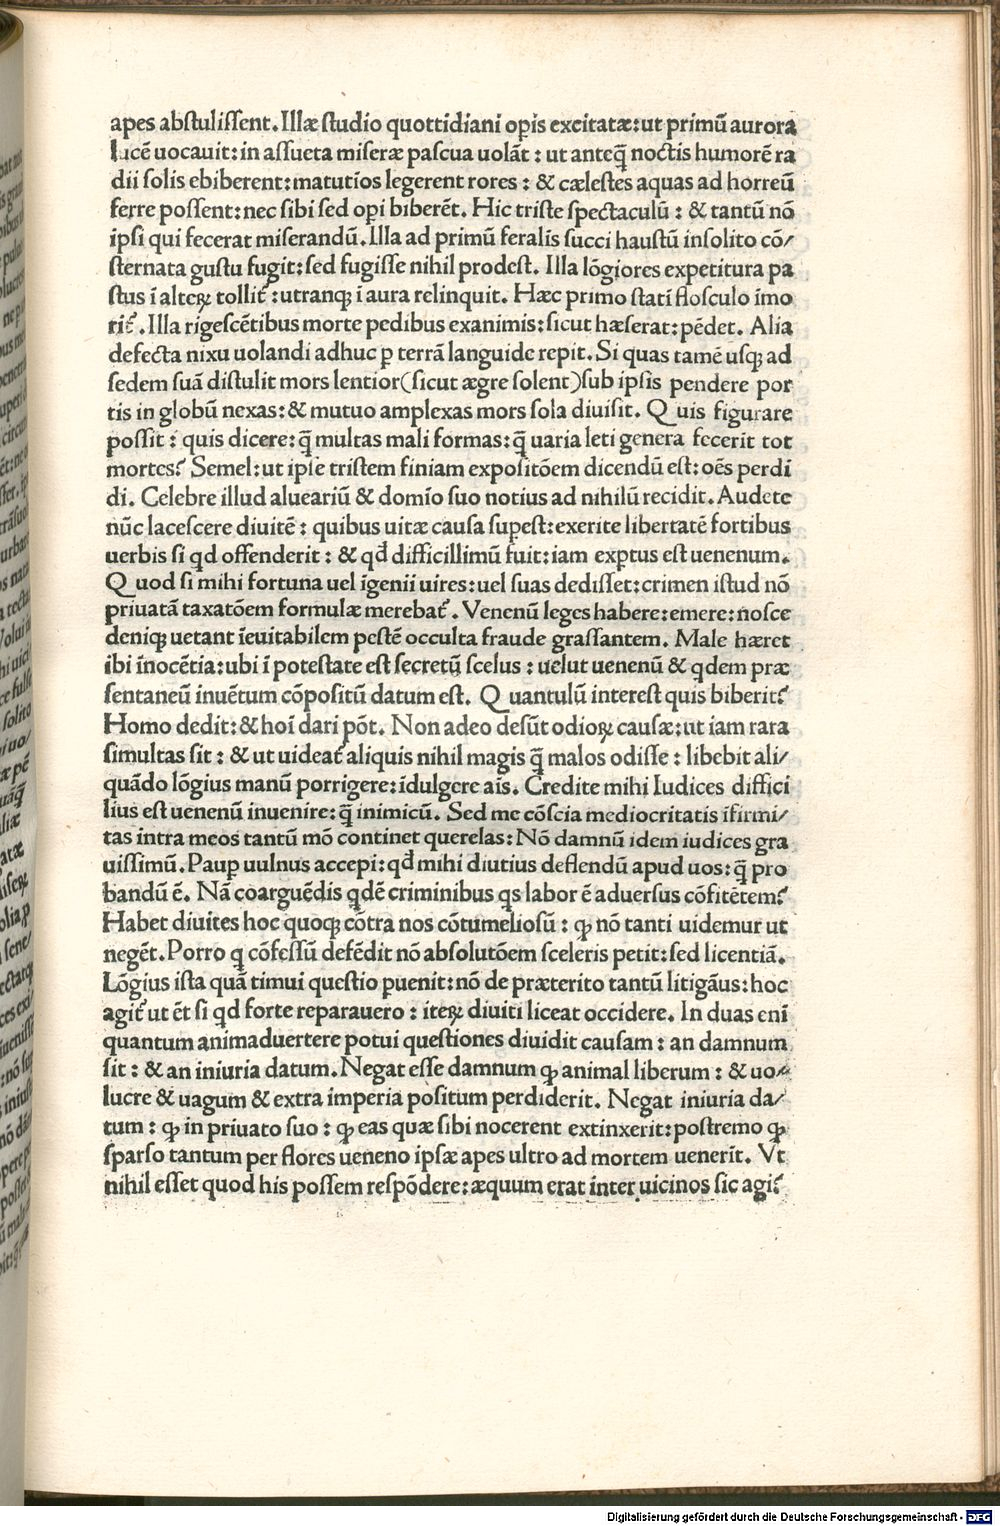 apes abstulissent. Illæ studio quottidiani oꝑis excitatæ: ut primū aurora
lucē uocauit: in assueta miseræ pascua uolāt : ut anteq̄ noctis humorē ra
dii solis ebiberent: matutīos legerent rores : & cælestes aquas ad horreū
ferre possent: nec sibi sed oꝑi biberēt. Hic triste spectaculū : & tantū nō
ipsi qui fecerat miserandū. Illa ad primū feralis succi haustū insolito cō/
sternata gustu fugit: sed fugisse nihil prodest. Illa lōgiores expetitura pa
stus ī alteꝝ tollit᷑ : utranqꝫ ī aura relinquit. Hæc primo statī flosculo īmo
rit᷑. Illa rigescētibus morte pedibus exanimis: sicut hæserat: pēdet. Alia
defecta nixu uolandi adhuc ꝑ terrā languide repit. Si quas tamē usqꝫ ad
sedem suā distulit mors lentior (sicut ægre solent) sub ipsis pendere por
tis in globū nexas: & mutuo amplexas mors sola diuisit. Quis figurare
possit : quis dicere: q̄ multas mali formas: q̄ uaria leti genera fecerit tot
mortes? Semel: ut ipse tristem finiam expositōem dicendū est: oēs perdi
di. Celebre illud alueariū & domīo suo notius ad nihilū recidit. Audete
nūc lacescere diuitē : quibus uitæ causa suꝑest: exerite libertatē fortibus
uerbis si qd offenderit : & qđ difficillimū fuit: iam exꝑtus est uenenum.
Quod si mihi fortuna uel īgenii uires: uel suas dedisset: crimen istud nō
priuatā taxatōem formulæ merebat᷑. Venenū leges habere: emere: nosce
deniqꝫ uetant īeuitabilem pestē occulta fraude grassantem. Male hæret
ibi īnocētia: ubi ī potestate est secretū scelus : uelut uenenū & qdem præ
sentaneū inuētum cōpositū datum est. Quantulū interest quis biberit?
Homo dedit: & hoī dari pōt. Non adeo desūt odioꝝ causæ: ut iam rara
simultas sit : & ut uideat᷑ aliquis nihil magis q̄ malos odisse : libebit ali/
quādo lōgius manū porrigere: īdulgere aīs. Credite mihi Iudices diffici
lius est uenenū inuenire: q̄ inimicū. Sed me cōscia mediocritatis īfirmi/
tas intra meos tantū mō continet querelas: Nō damnū idem iudices gra
uissimū. Pauꝑ uulnus accepi: qđ mihi diutius deflendū apud uos: q̄ pro
bandū ē. Nā coarguēdis qdē criminibus qs labor ē aduersus cōfitētem?
Habet diuites hoc quoqꝫ cōtra nos cōtumeliosū : ꝙ nō tanti uidemur ut
negēt. Porro q cōfessū defēdit nō absolutōem sceleris petit: sed licentiā.
Lōgius ista quā timui questio ꝑuenit: nō de præterito tantū litigāus: hoc
agit᷑ ut ēt si qd forte reparauero : iteꝝ diuiti liceat occidere. In duas enī
quantum animaduertere potui questiones diuidit causam : an damnum
sit : & an iniuria datum. Negat esse damnum ꝙ animal liberum : & uo/
lucre & uagum & extra imperia positum perdiderit. Negat iniuria da/
tum : ꝙ in priuato suo : ꝙ eas quæ sibi nocerent extinxerit: postremo ꝙ
sparso tantum per flores ueneno ipsæ apes ultro ad mortem uenerit. Vt
nihil esset quod his possem respōdere: æquum erat inter uicinos sic agi?
Digitalisierung gefördert durch die Deutsche Forschungsgemeinschaft - DFG